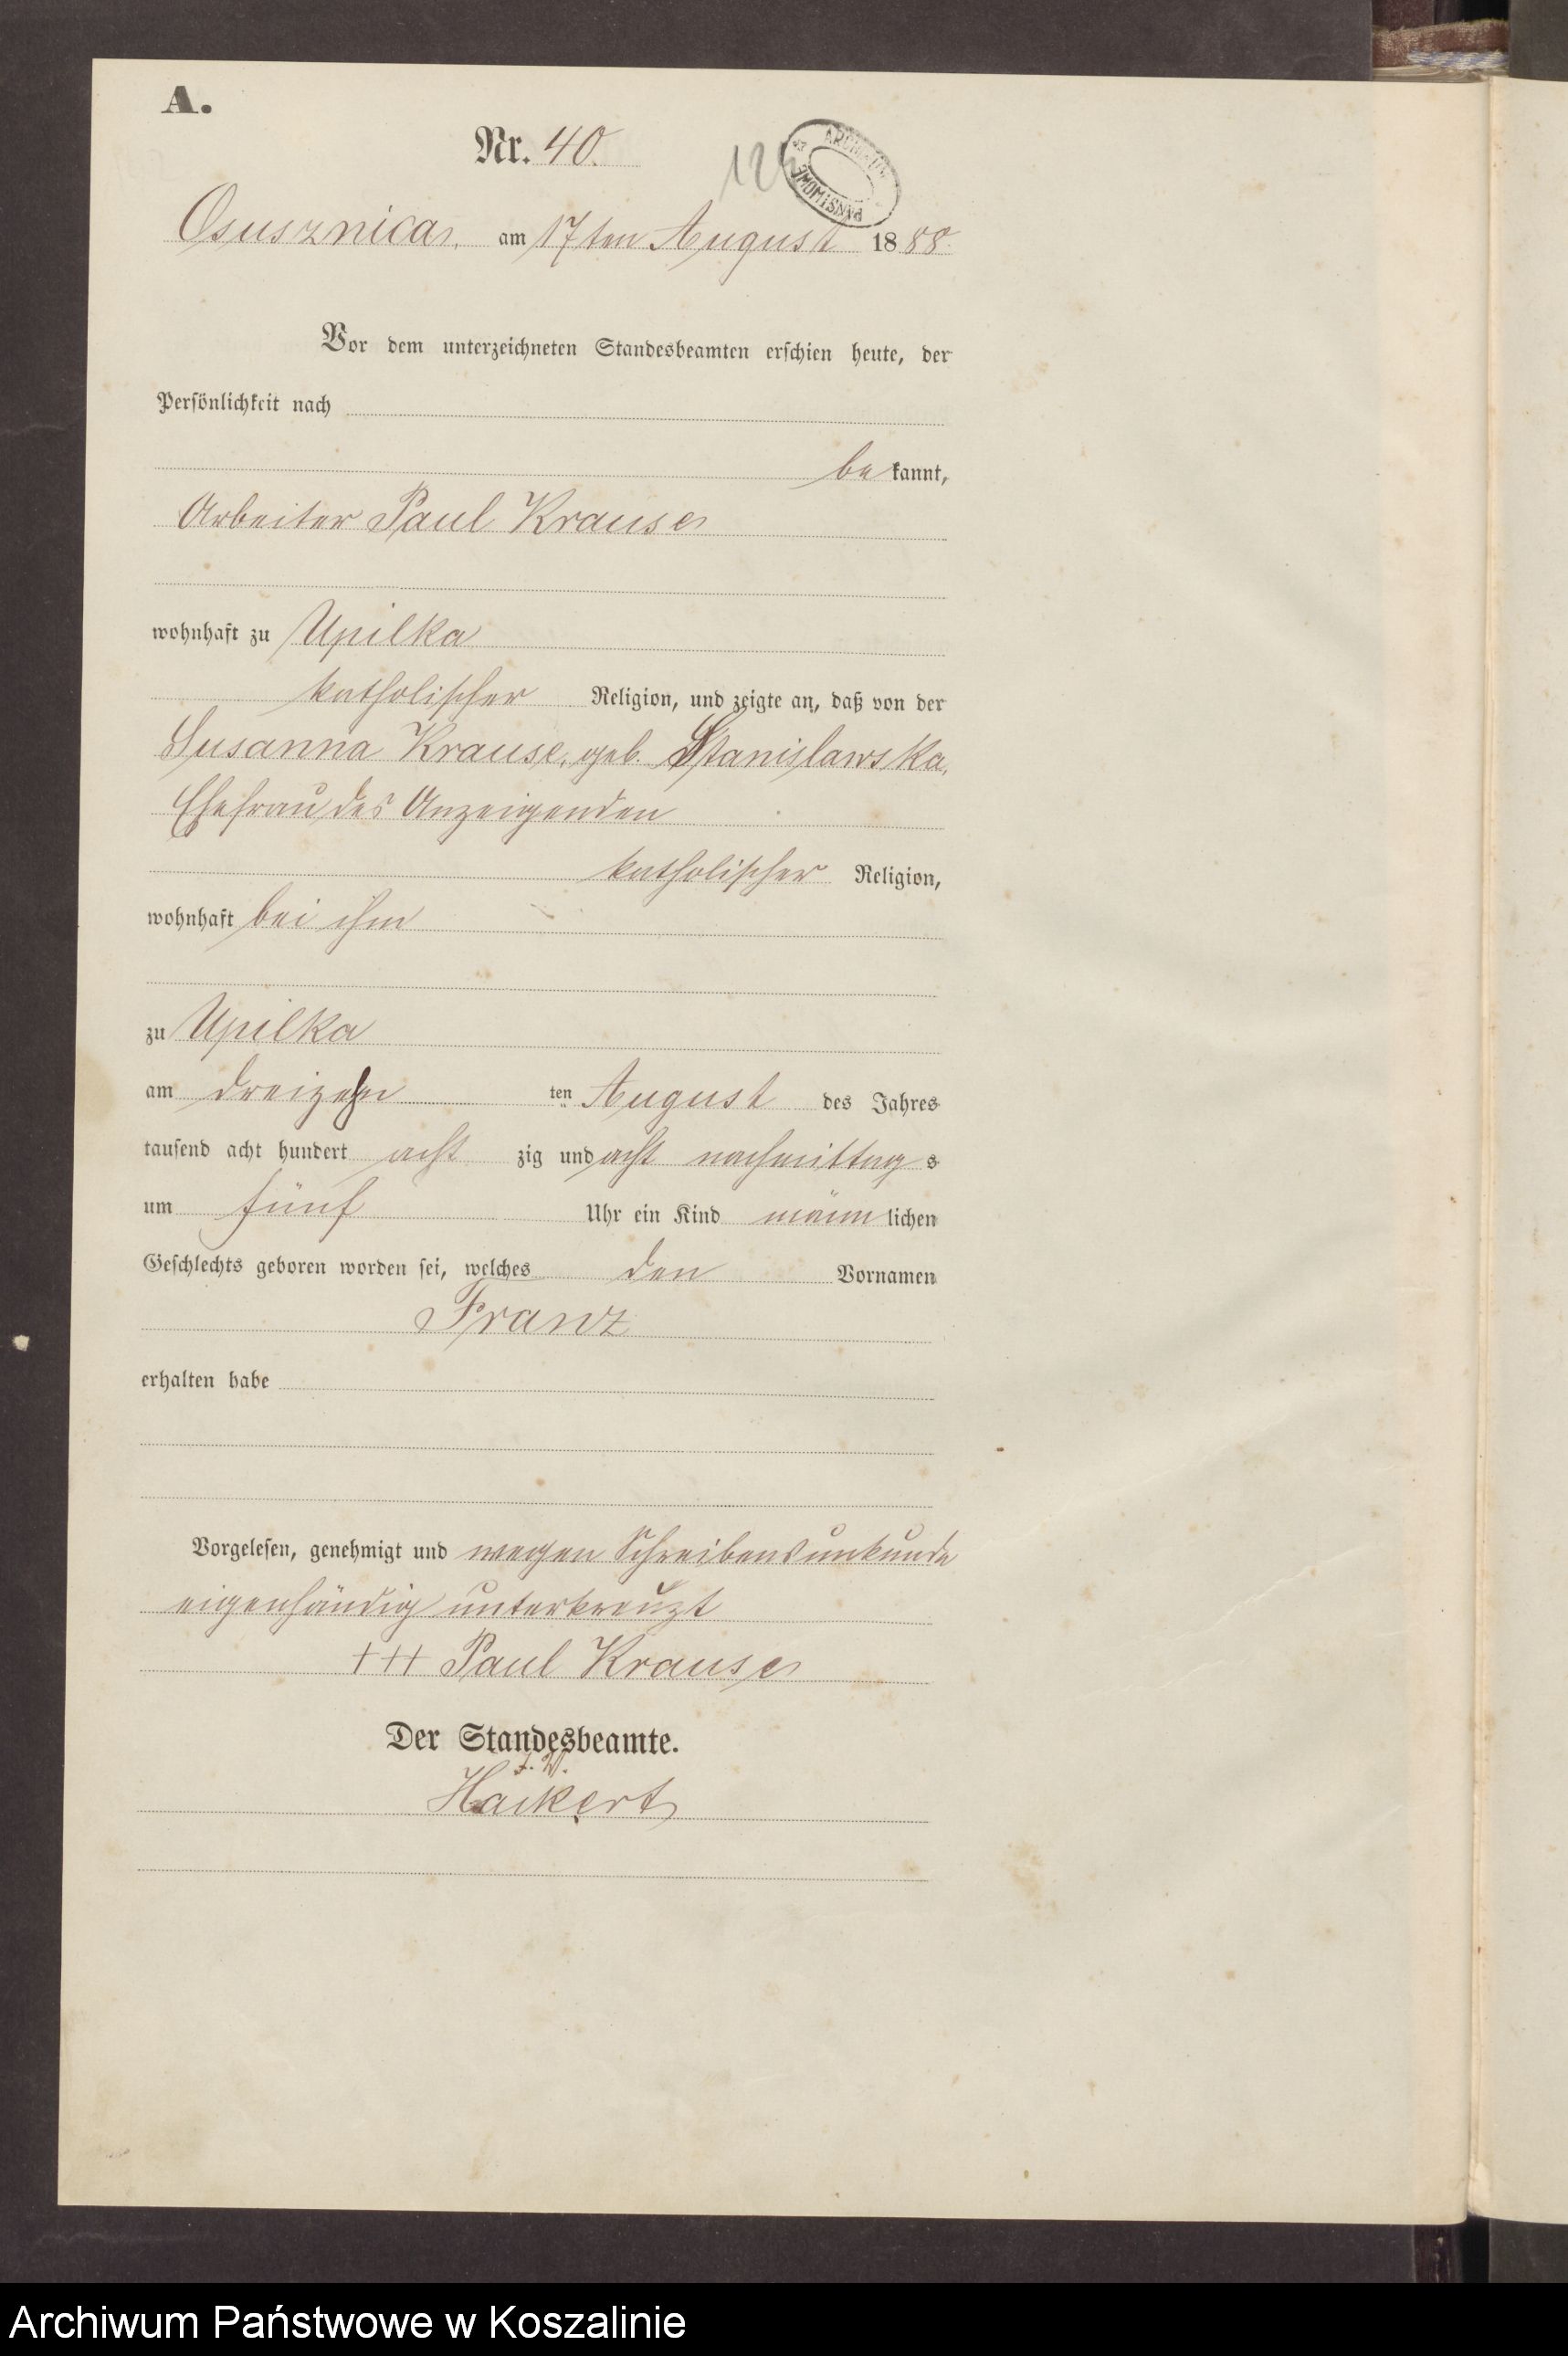 A.
Nr. 40.
ARCHIWUM PAŃSTWOWE
Osusznica, am 17ten August 1888.
Vor dem unterzeichneten Standesbeamten erschien heute, der
Persönlichkeit nach
be kannt,
Arbeiter Paul Krause
wohnhaft zu Upilka
katholischer Religion, und zeigte an, daß von der
Susanna Krause, geb. Stanislawska,
Ehefrau des Anzeigenden
katholischer Religion,
wohnhaft bei ihm
zu Upilka
am dreizehn ten August des Jahres
tausend acht hundert acht zig und acht nachmittag s
um fünf Uhr ein Kind männ lichen
Geschlechts geboren worden sei, welches den Vornamen
Franz
erhalten habe
Vorgelesen, genehmigt und wegen Schreibensunkunde
eigenhändig unterkreuzt
+++ Paul Krause
Der Standesbeamte.
Archiwum Państwowe w Koszalinie